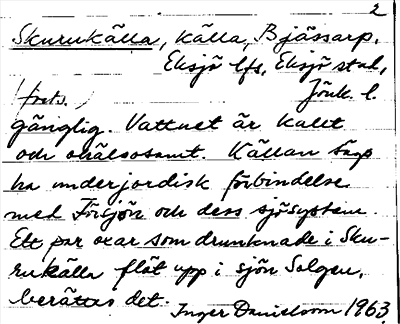 2
Skurukälla, källa, Bjässarp,
Eksjö lfs, Eksjö stad,
(forts.) Jönk. l.
gänglig. Vattnet är kallt
och ohälsosamt. Källan sägs
ha underjordisk förbindelse
med Försjön och dess sjösystem.
Ett par oxar som drunknade i Sku-
rukälla flöt upp i sjön Solgen,
berättas det. Inger Danielsson 1963.